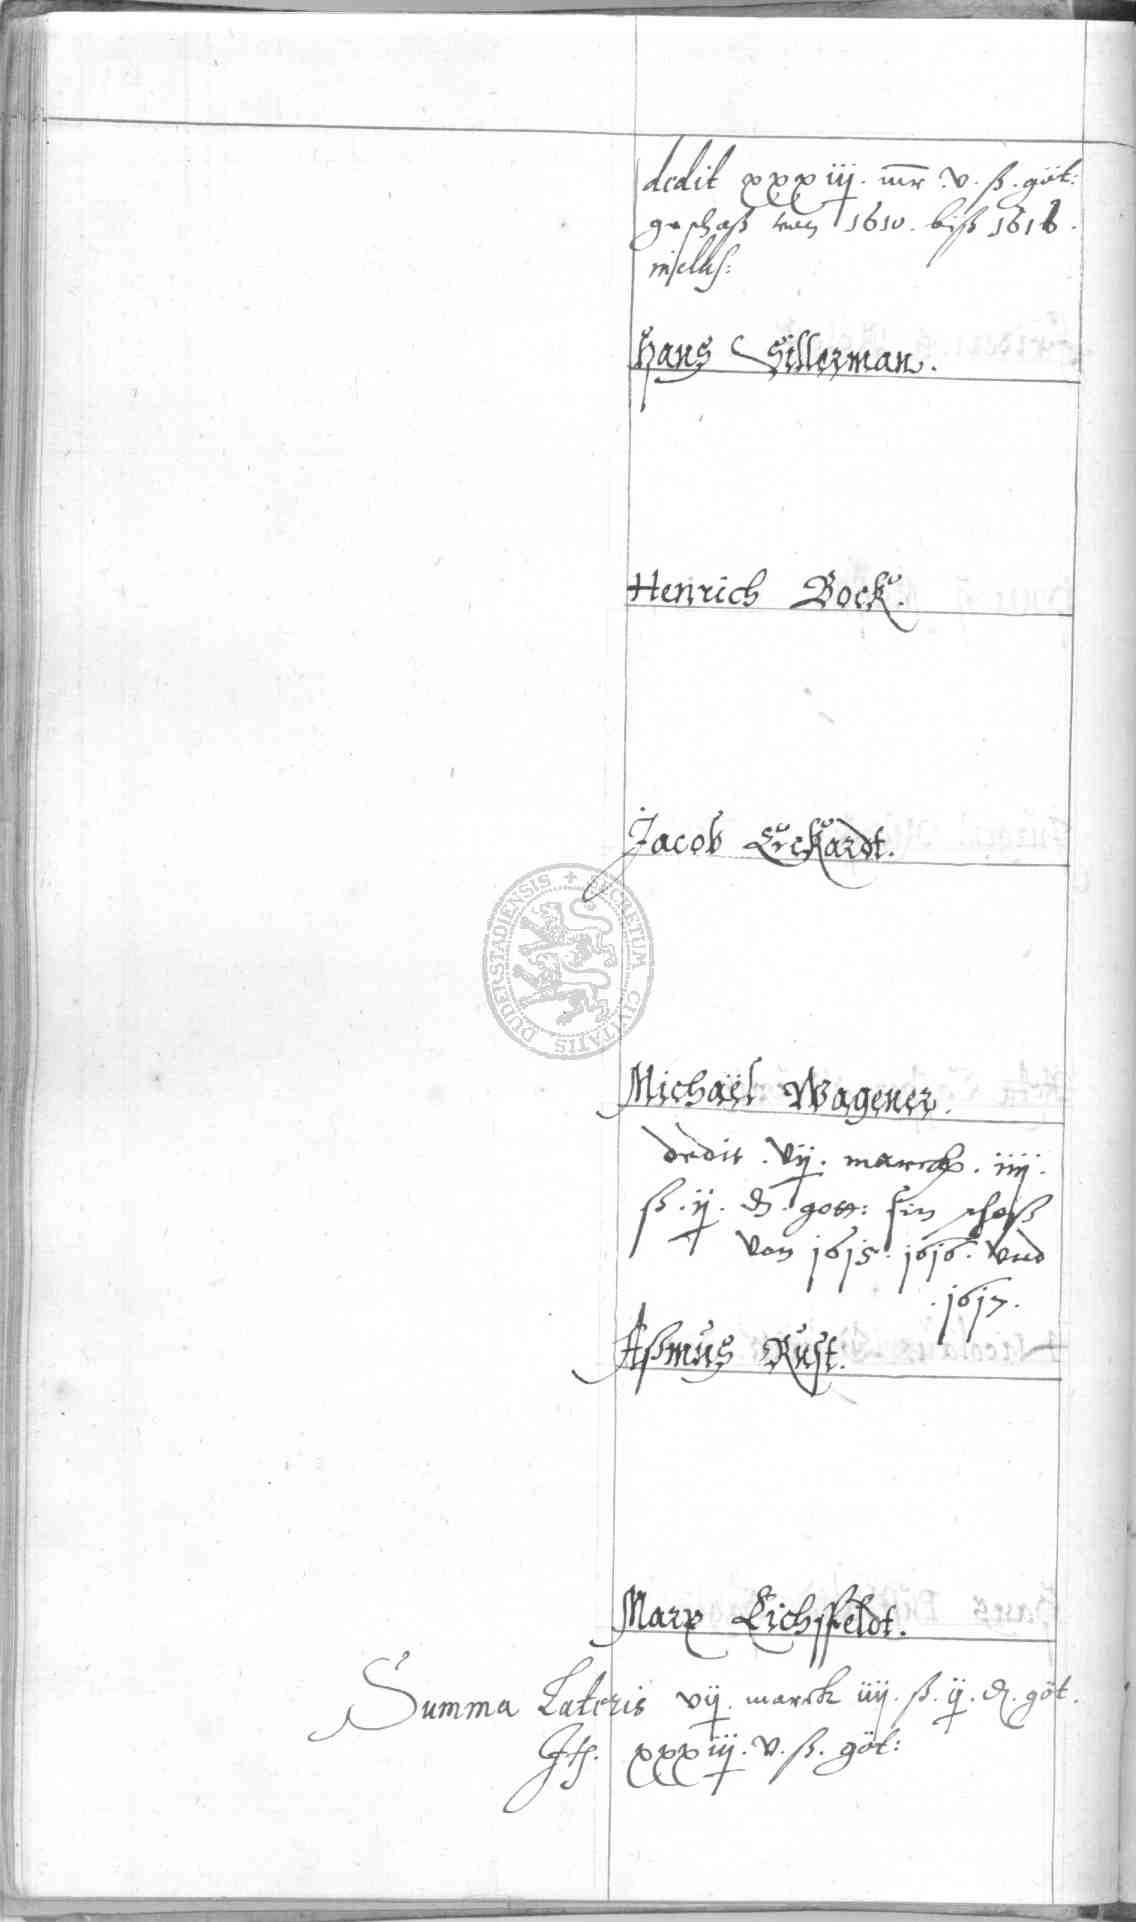 dedit xxxiij. mr. v. ß. göt:
geschoß von 1610. biß 1616.
Hans Sillerman.
Henrich Bock.
Jacob Eckardt.
DUDERSTADIENSIS + SECRETUM CIVITATIS
Michaël Wagener.
dedit. vij. marck. iiij.
ß. ij. ₰. gott: sin schoß
von 1615. 1616. vnd
.1617.
Aßmus Rust.
Marx Eichssfeldt.
Summa Lateris vij. marck iiij. ß. ij. ₰. göt.
xxxiij. v. ß. göt: